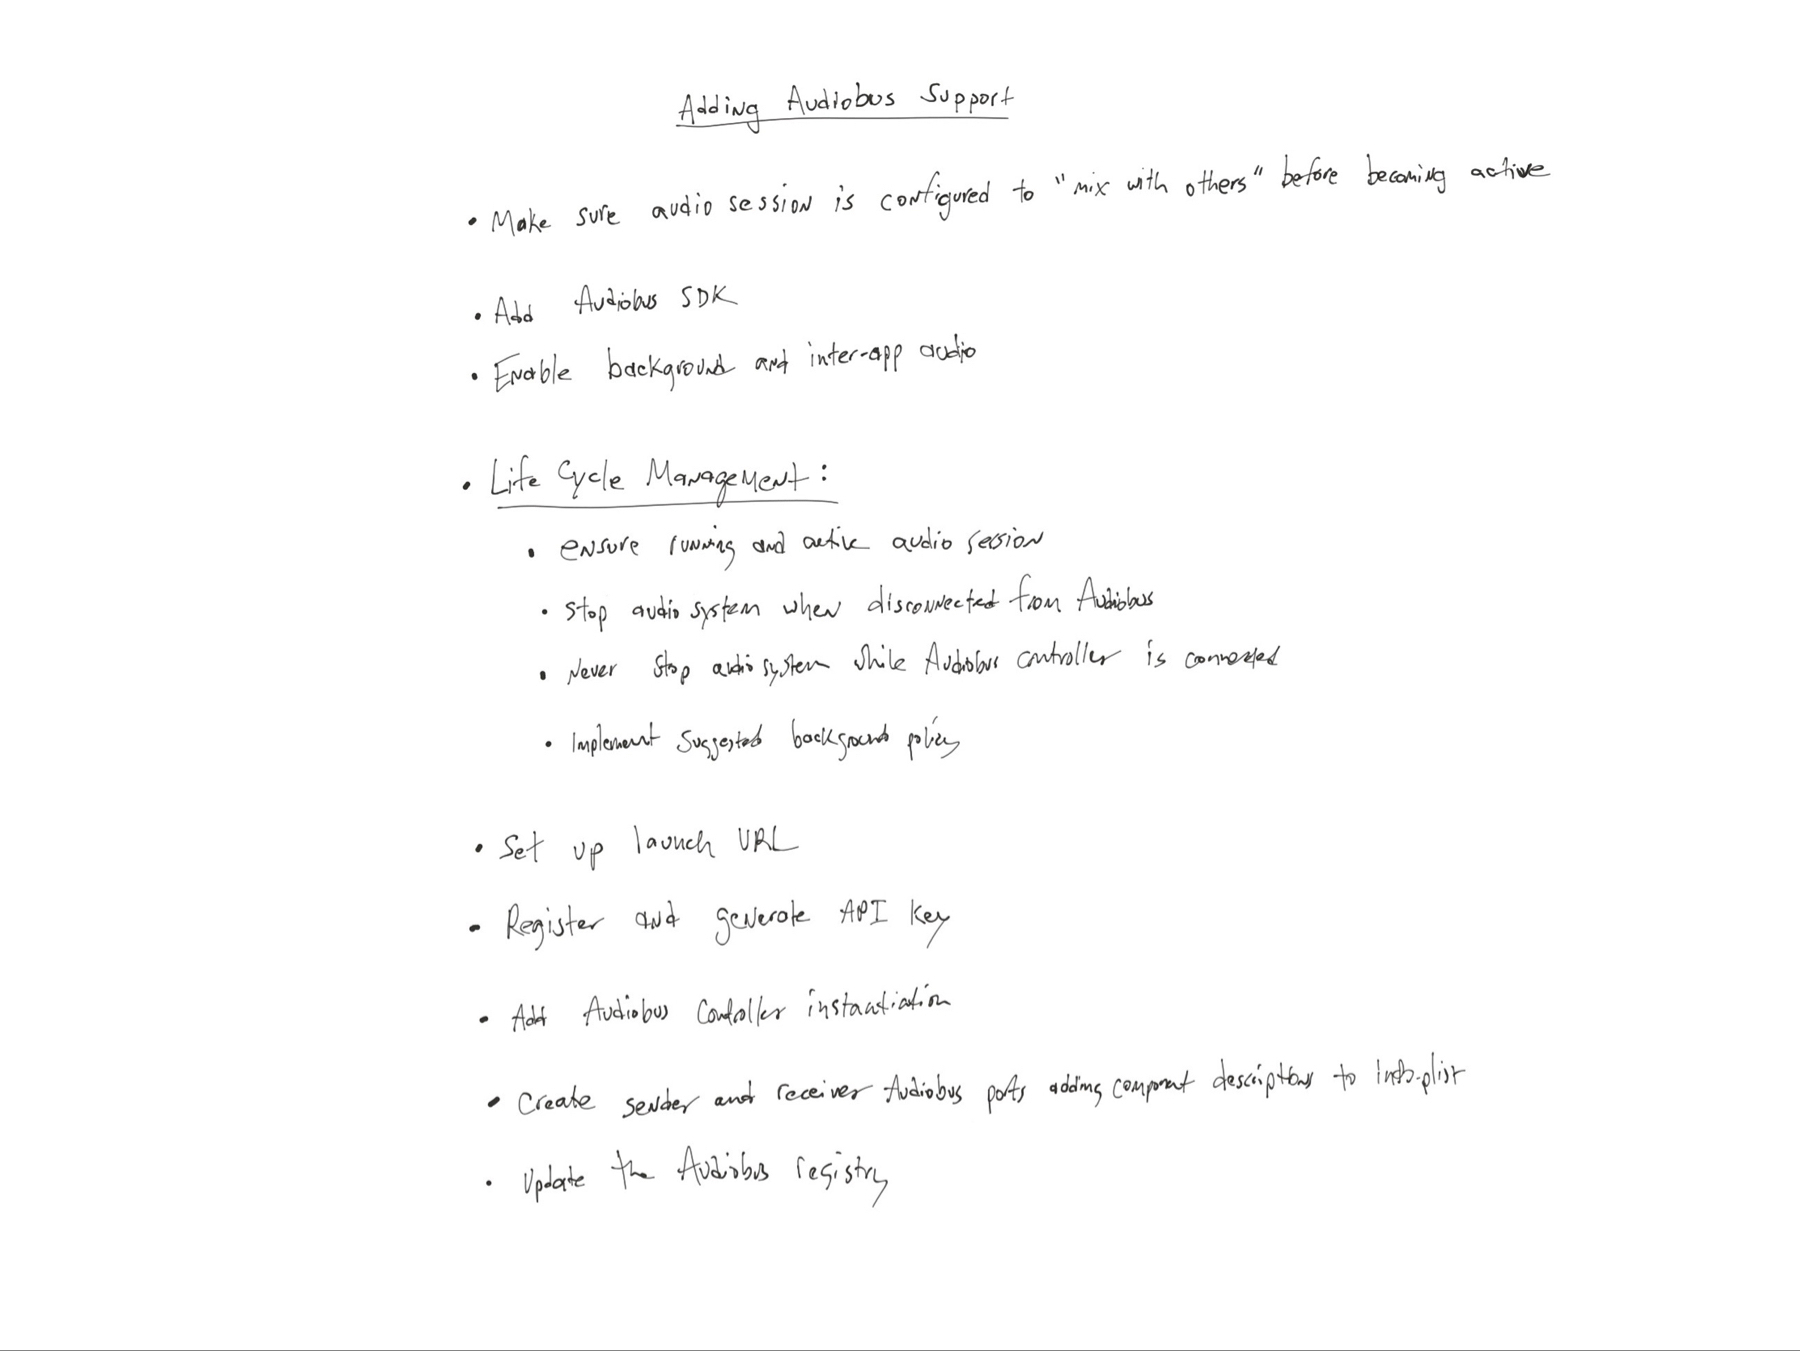 Adding Audiobus Support
• Make sure audio session is configured to "mix with others" before becoming active
• Add Audiobus SDK
• Enable background and inter-app audio
• Life Cycle Management:
• ensure running and active audio session
• Stop audio system when disconnected from Audiobus
• Never stop audio system while Audiobus controller is connected
• Implement suggested background policy
• Set up launch URL
• Register and generate API Key
• Add Audiobus Controller instantiation
• Create sender and receiver Audiobus ports adding component descriptions to Info.plist
• Update the Audiobus registry